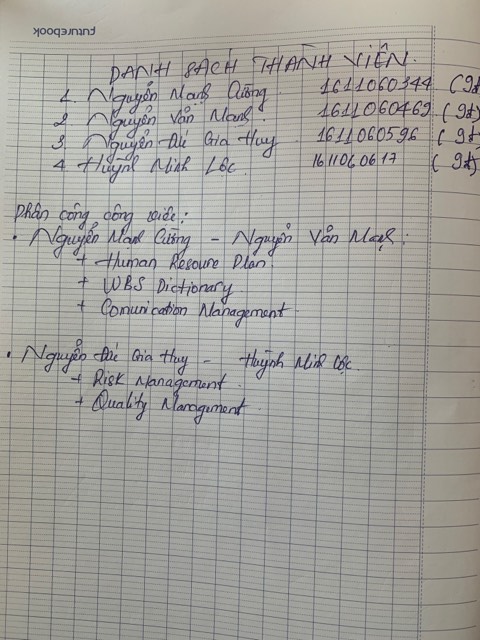 futurebook
DANH SÁCH THÀNH VIÊN.
1. Nguyễn Mạnh Cường. 1611060344 (9đ)
2 Nguyễn Văn Mạnh. 1611060469 (9đ)
3 Nguyễn Đế Gia Huy 1611060596 (9đ)
4 Huỳnh Minh Lộc. 1611060617 (9đ)
Phân công công việc:
• Nguyễn Mạnh Cường - Nguyễn Văn Mạnh:
+ Human Resoure Plan.
+ WBS Dictionary.
+ Comunication Management.
• Nguyễn Đế Gia Huy - Huỳnh Minh Lộc.
+ Risk Management.
+ Quality Management.